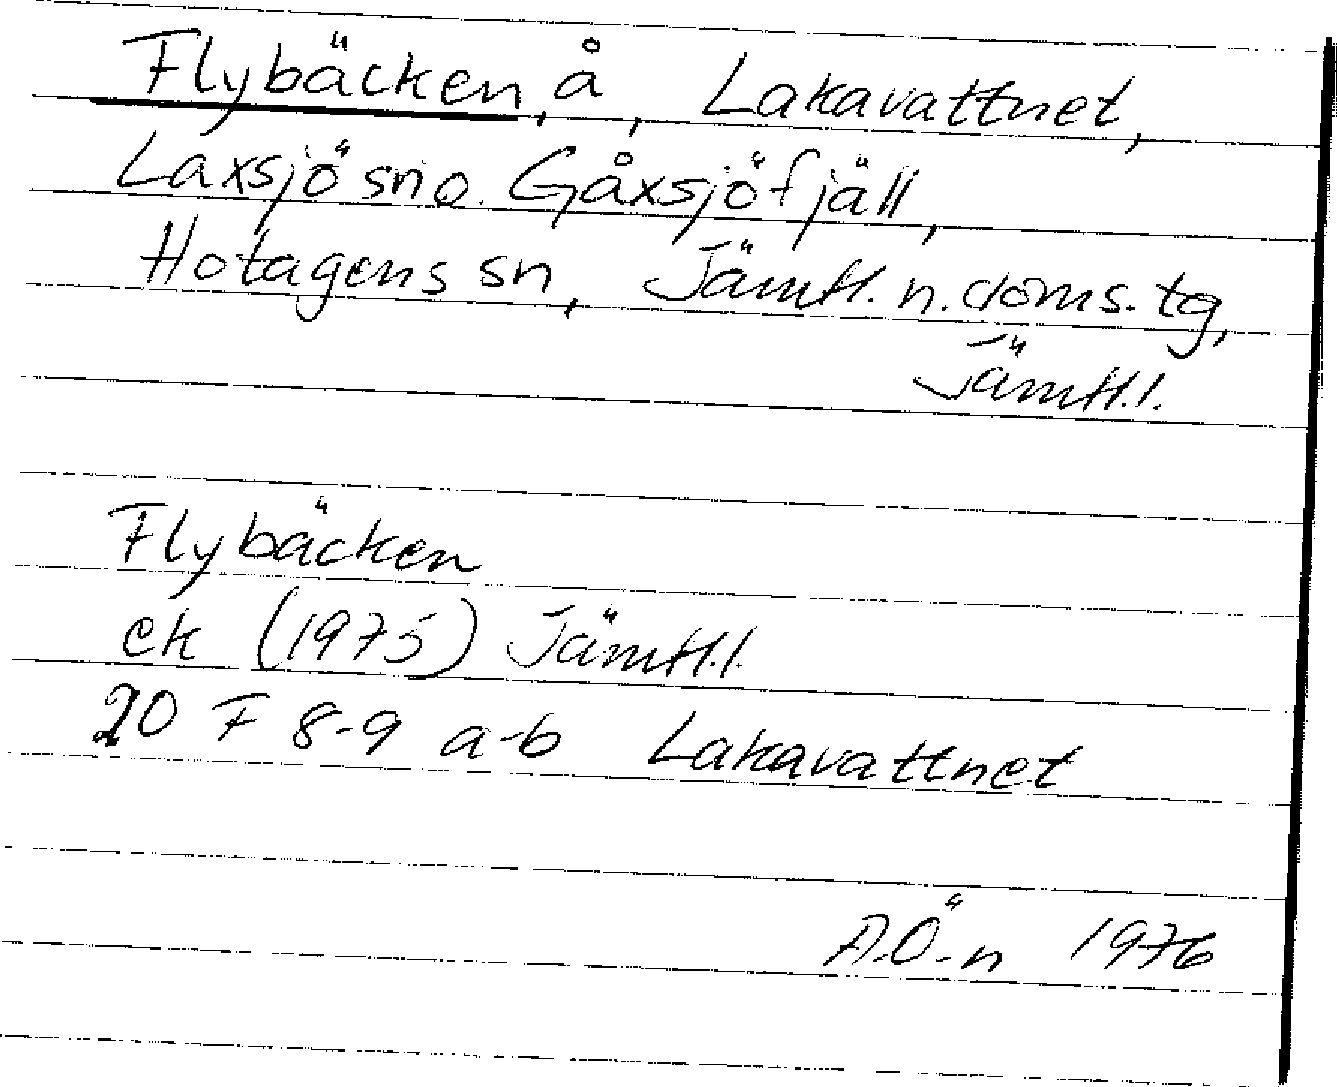 Flybäcken, å, Lakavattnet,
Laxsjö sn o. Gåxsjöfjäll,
Hotagens sn, Jämtl. n. doms. tg,
Jämtl. l.
Flybäcken
ek (1975) Jämtl. l.
20 F 8-9 a-b Lakavattnet
A.Ö-n 1976